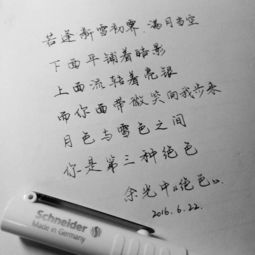 若逢新雪初霁.满月当空
下面平铺着皓影
上面流转着亮银
而你面带微笑向我步来
月色与雪色之间
你是第三种绝色
余光中《绝色》.
2016.6.22.
Schneider
Made in Germany